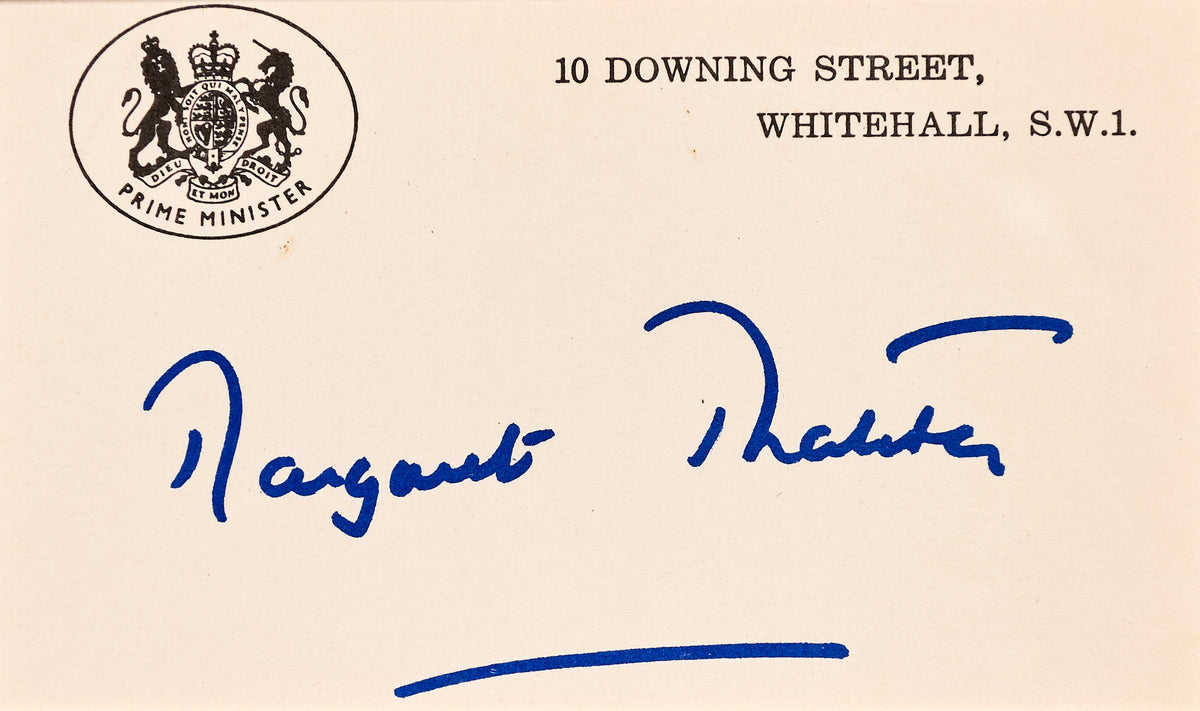 HONI SOIT QUI MAL Y PENSE
DIEU ET MON DROIT
PRIME MINISTER
10 DOWNING STREET,
WHITEHALL, S.W.1.
Margaret Thatcher